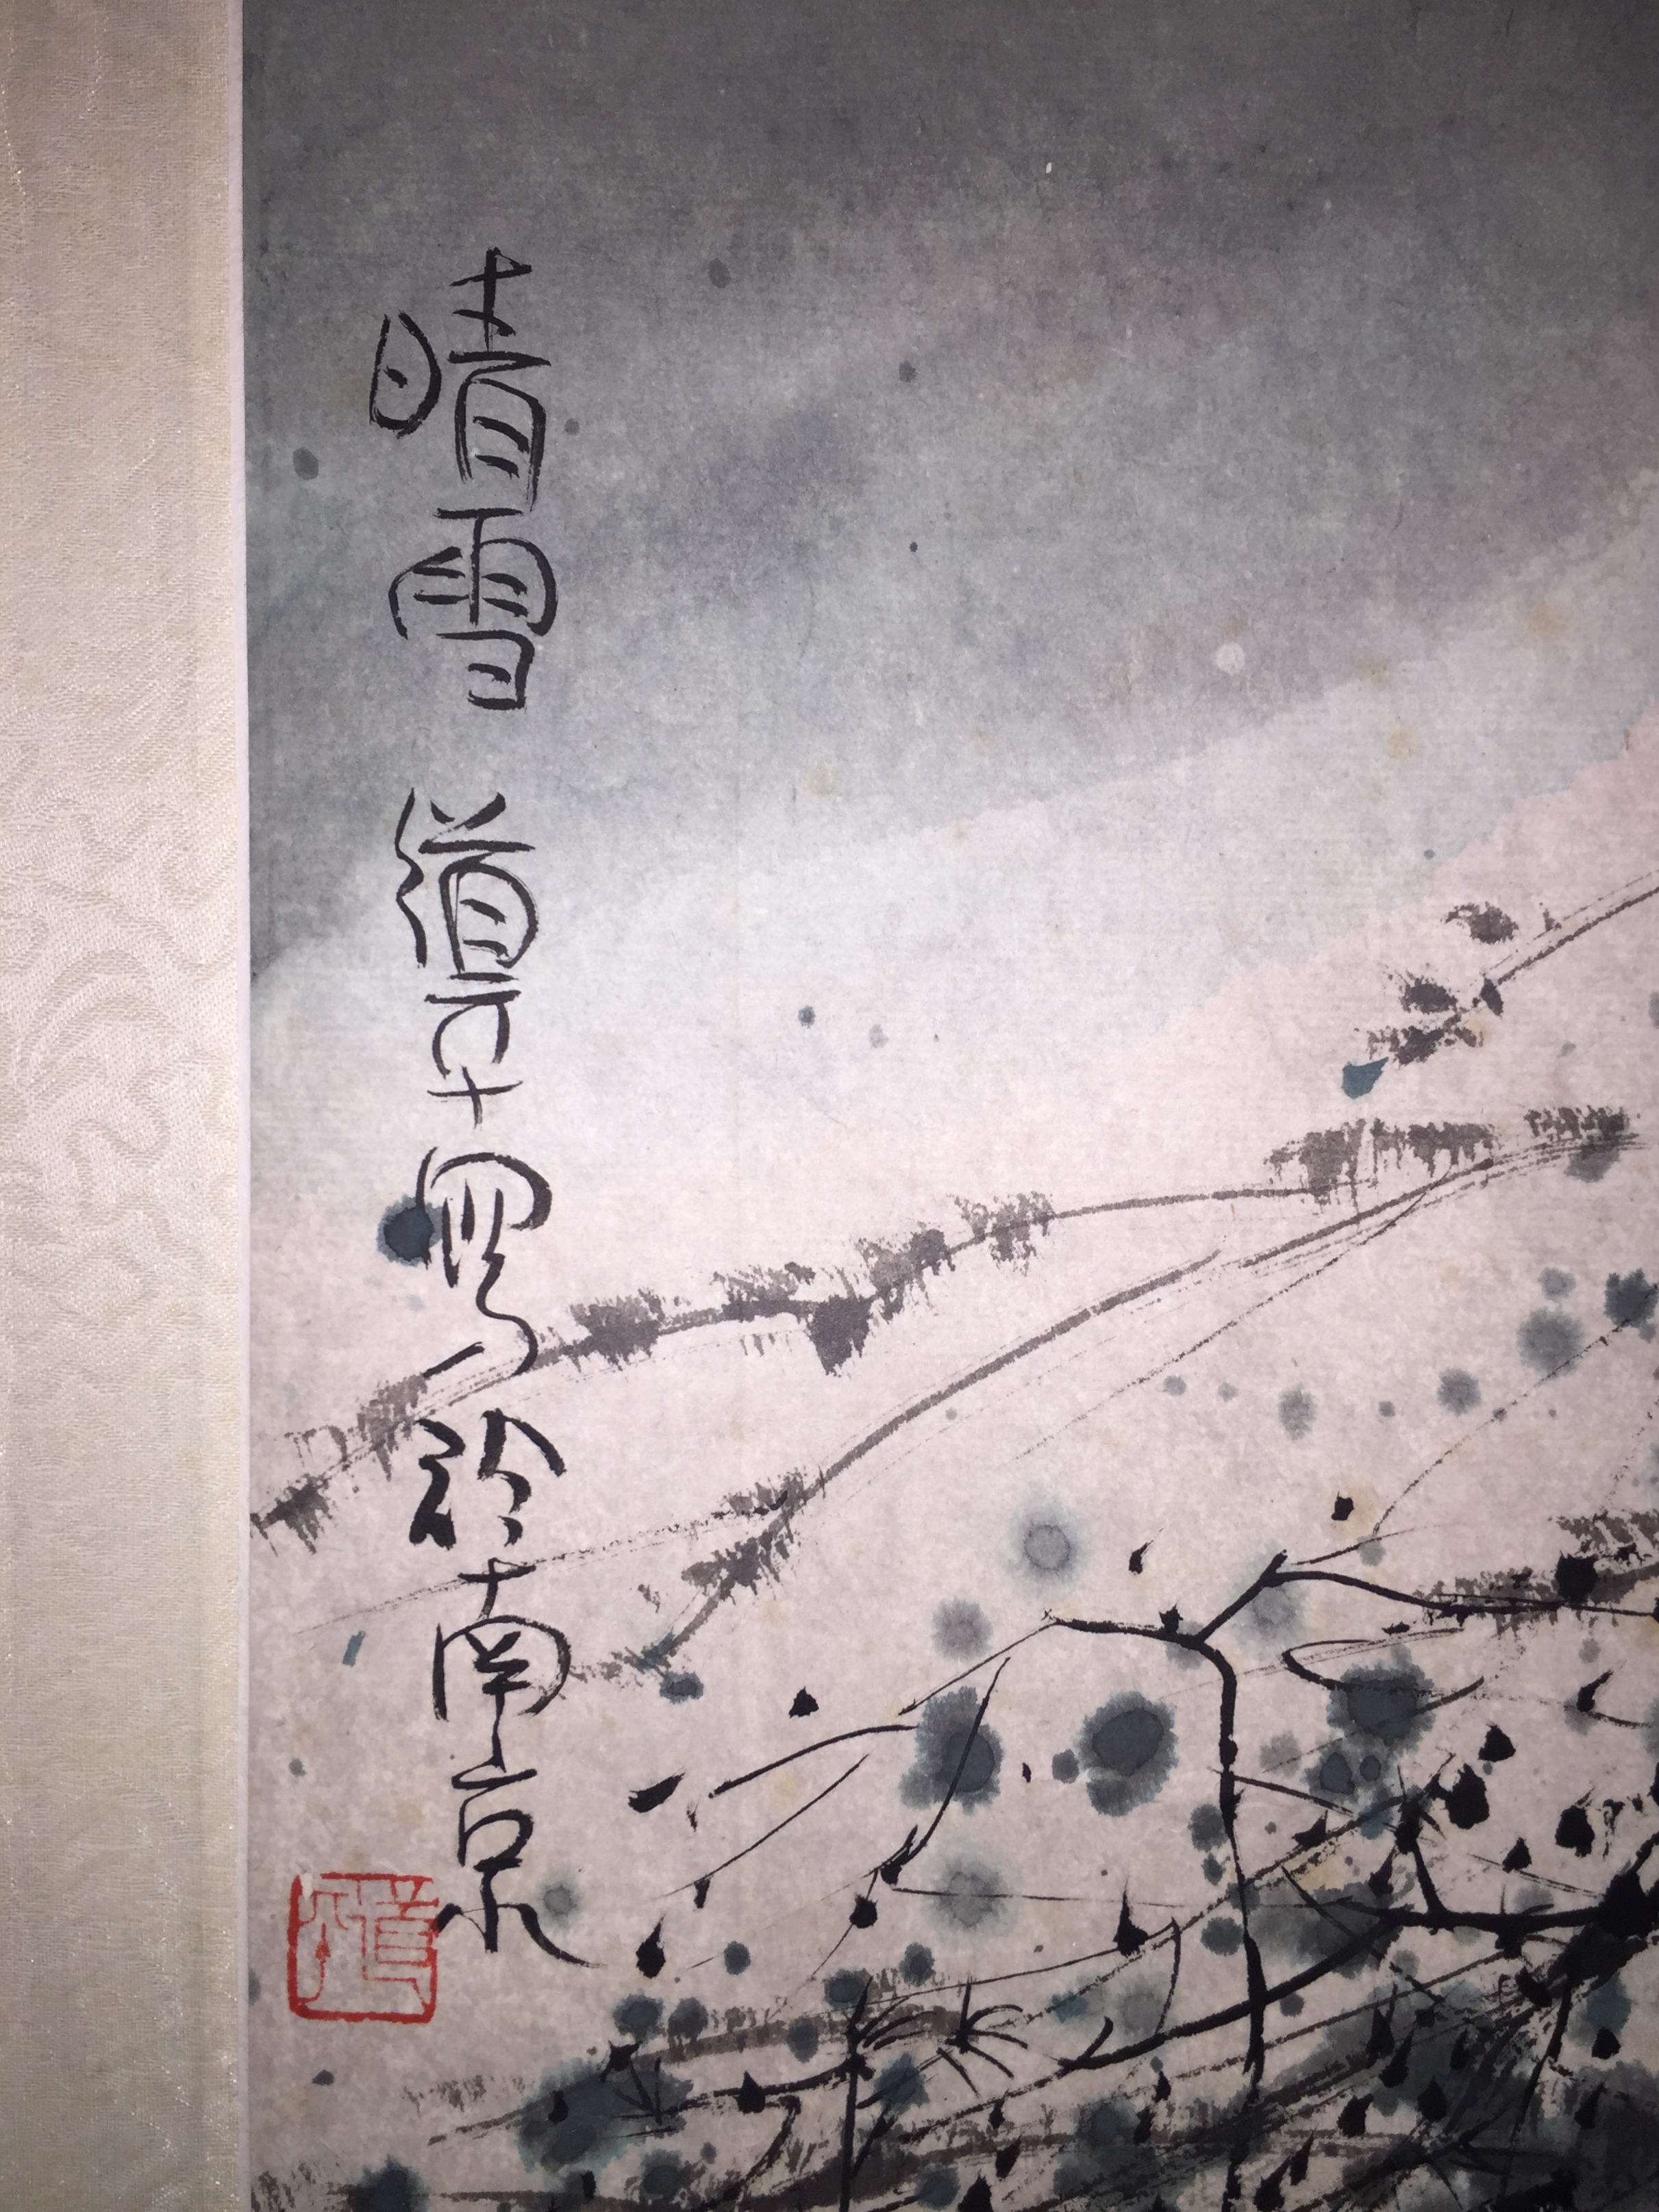 晴雪 道平寫於南京